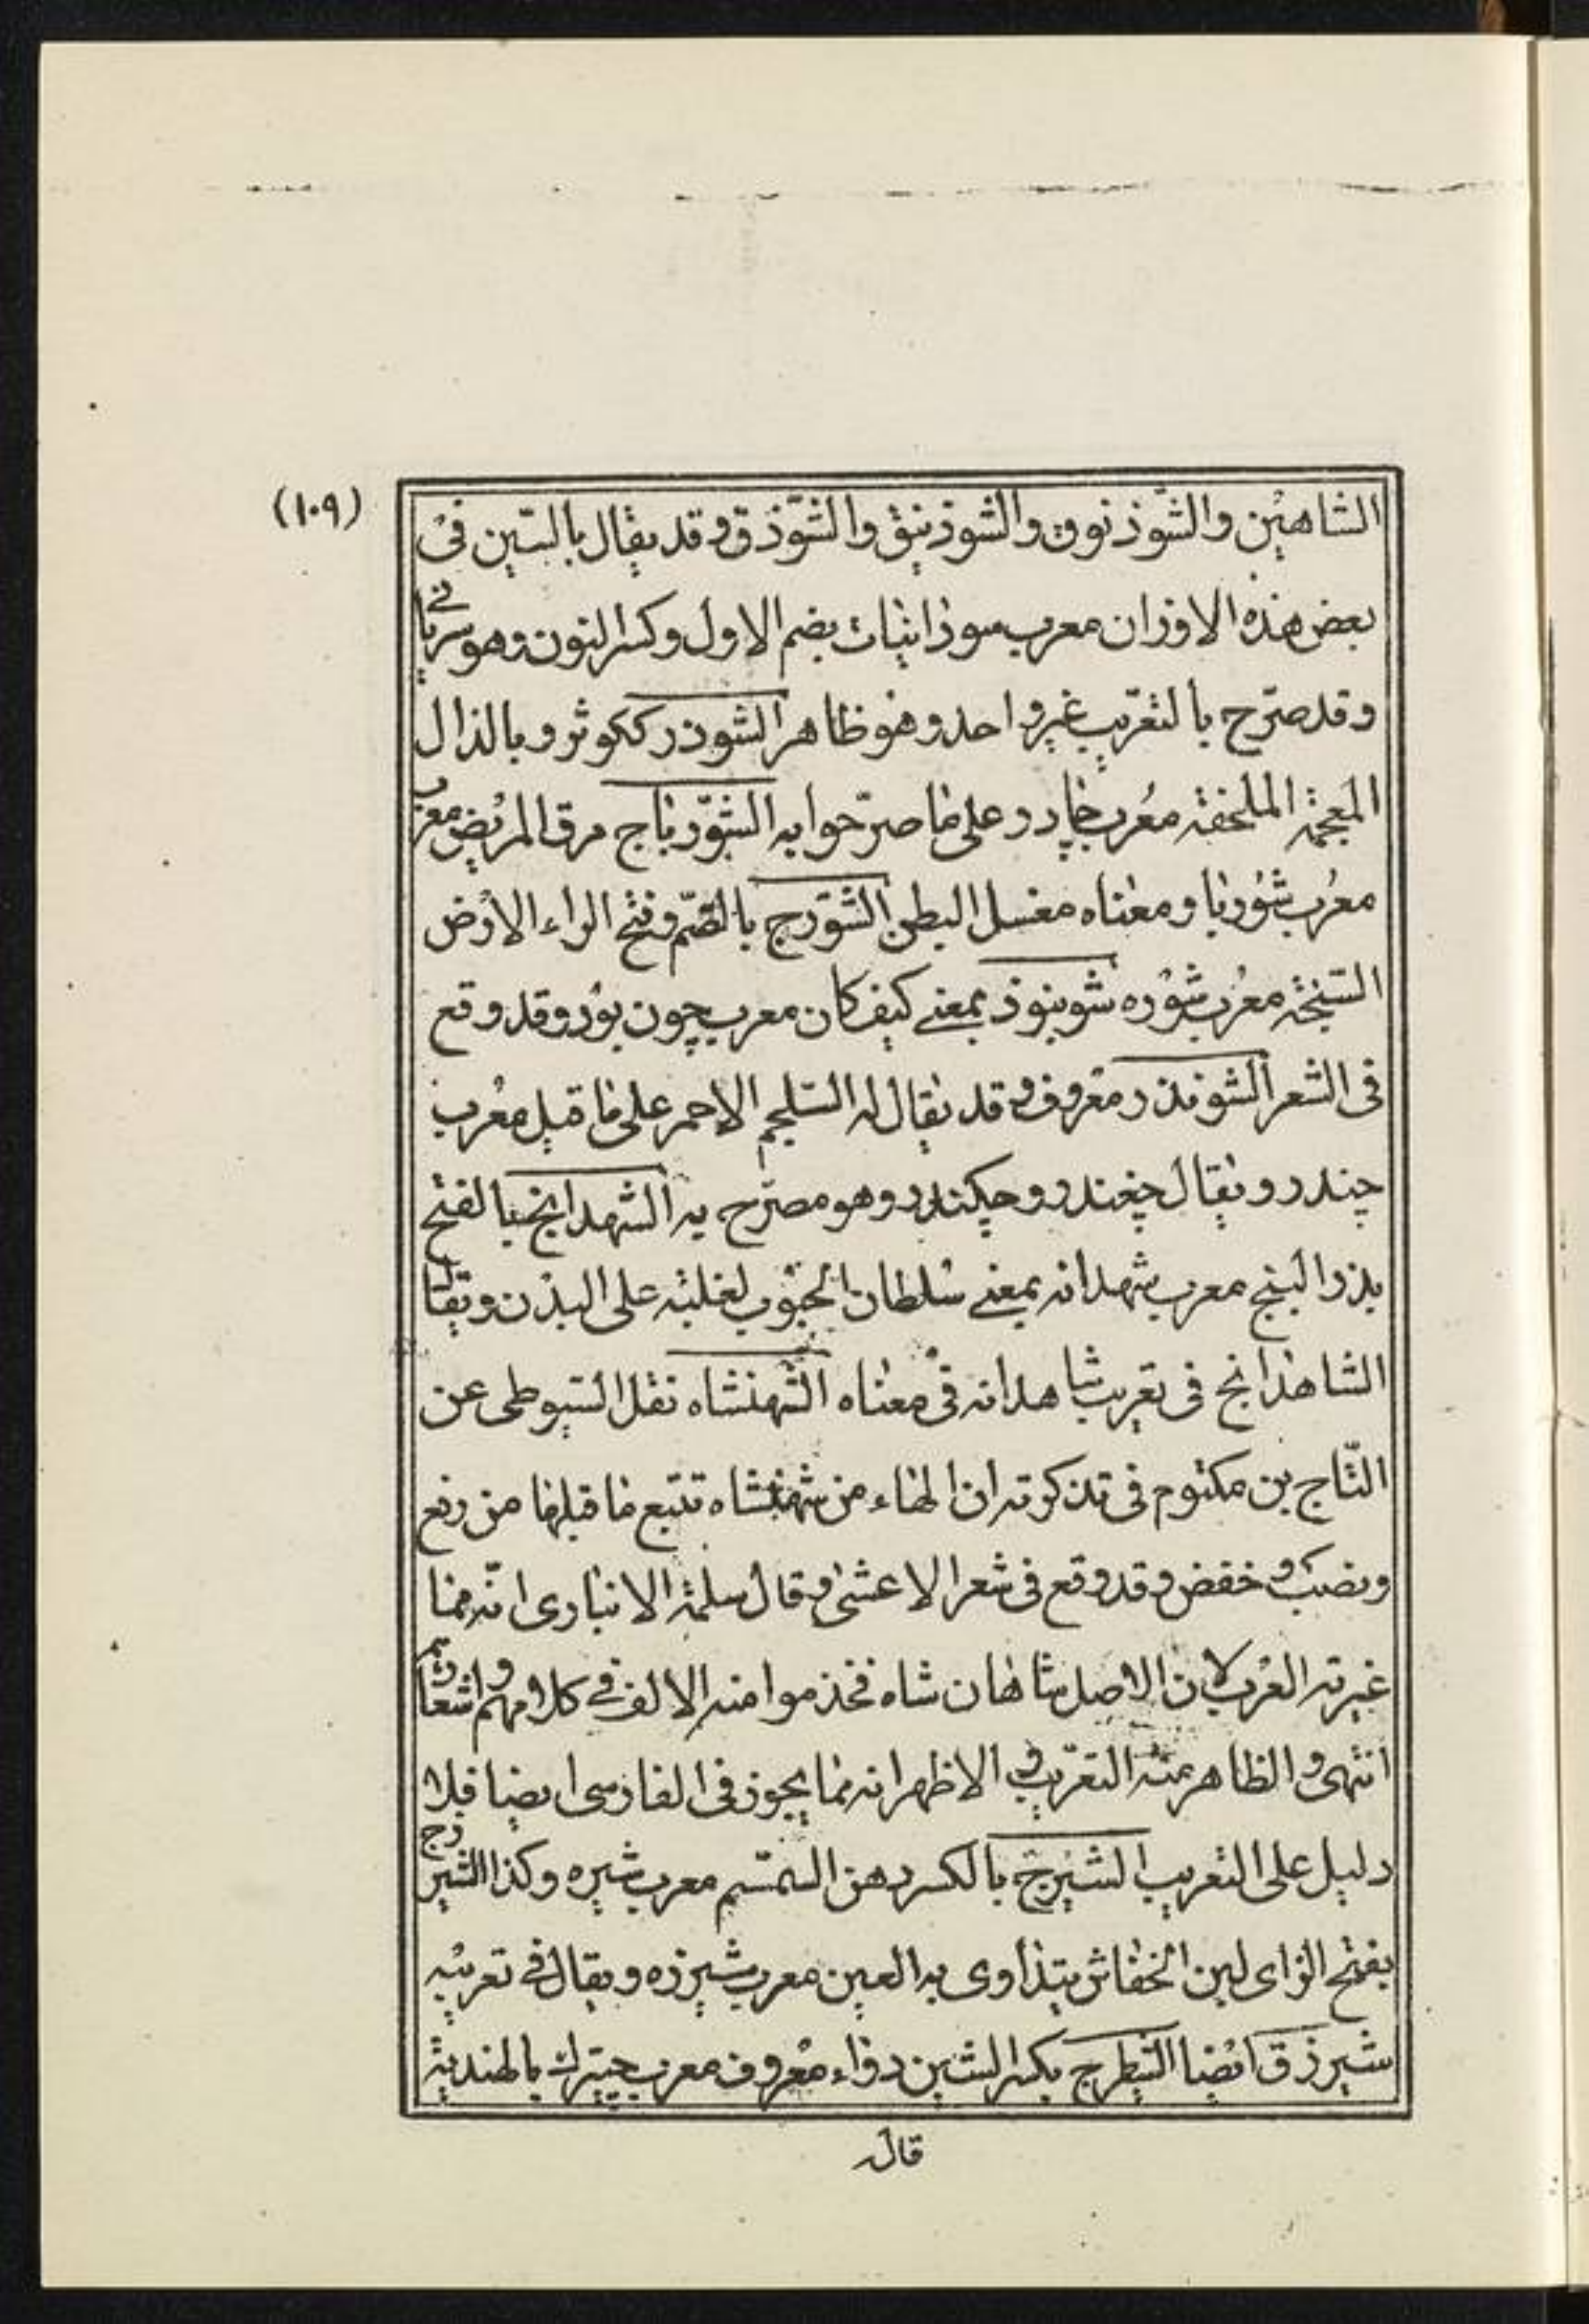 (١٠٩)
الشاهين والشوذنوق والشوذنيق والشوذق وقد يقال بالسين فى
بعض هذه الاوزان معرب سوذانيات بضم الاول وكسر النون وهو سريانى
وقد صرّح بالتعريب غير واحد وهو ظاهر الشوذر ككوثر وبالذال
المعجمة الملحفة معرب چادر على ما صرّحوا به الشورباج مرق المريض معرب
معرب شوربا ومعناه مغسل البطن الشورج بالضم وفتح الراء الارض
السبخة معرب شوره شوبنوذ بمعنى كيف كان معرب چون بود وقد وقع
فى الشعر الشوندر معروف وقد يقال له السلجم الاحمر على ما قيل معرب
چندر ويقال چغندر وچكندر وهو مصرّح به الشهدانج بالفتح
بذر البنج معرب شهدانه بمعنى سلطان الحبوب لغلبته على البدن ويقال
الشاهدانج فى تعريب شاهدانه فى معناه الشهنشاه نقل السيوطى عن
التّاج بن مكتوم فى تذكرته ان الهاء من شهنشاه تتبع ما قبلها من رفع
ونصب وخفض وقد وقع فى شعر الاعشى وقال سلمة الانبارى انّه مما
غيرته العرب لان الاصل شاهان شاه فخذموا منه الالف فى كلامهم واشعارهم
انتهى والظاهر منه التعريب والاظهر انه مما يجوز فى الفارسى ايضا فلا
دليل على التعريب الشيرج بالكسر دهن السمسم معرب شيره وكذا الشيرزج
بفتح الزاى لبن الخفاش يتداوى به العين معرب شيرزه ويقال فى تعريبه
شيرزق ايضا الشيطرج بكسر الشين دواء معروف معرب چيترك بالهندية
قال